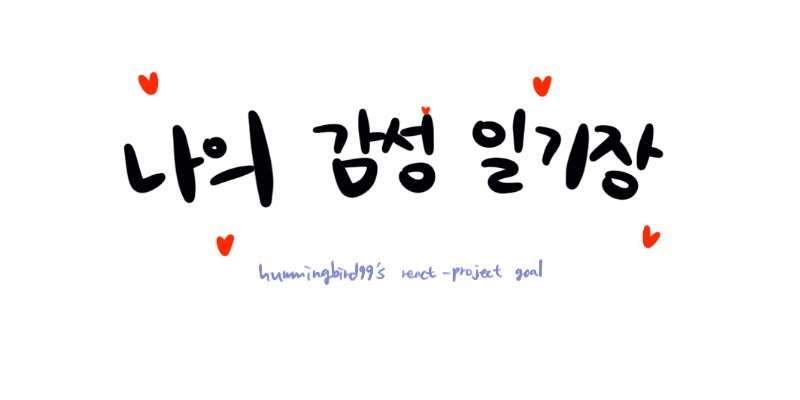 나의 감성 일기장
hummingbird99's react-project goal